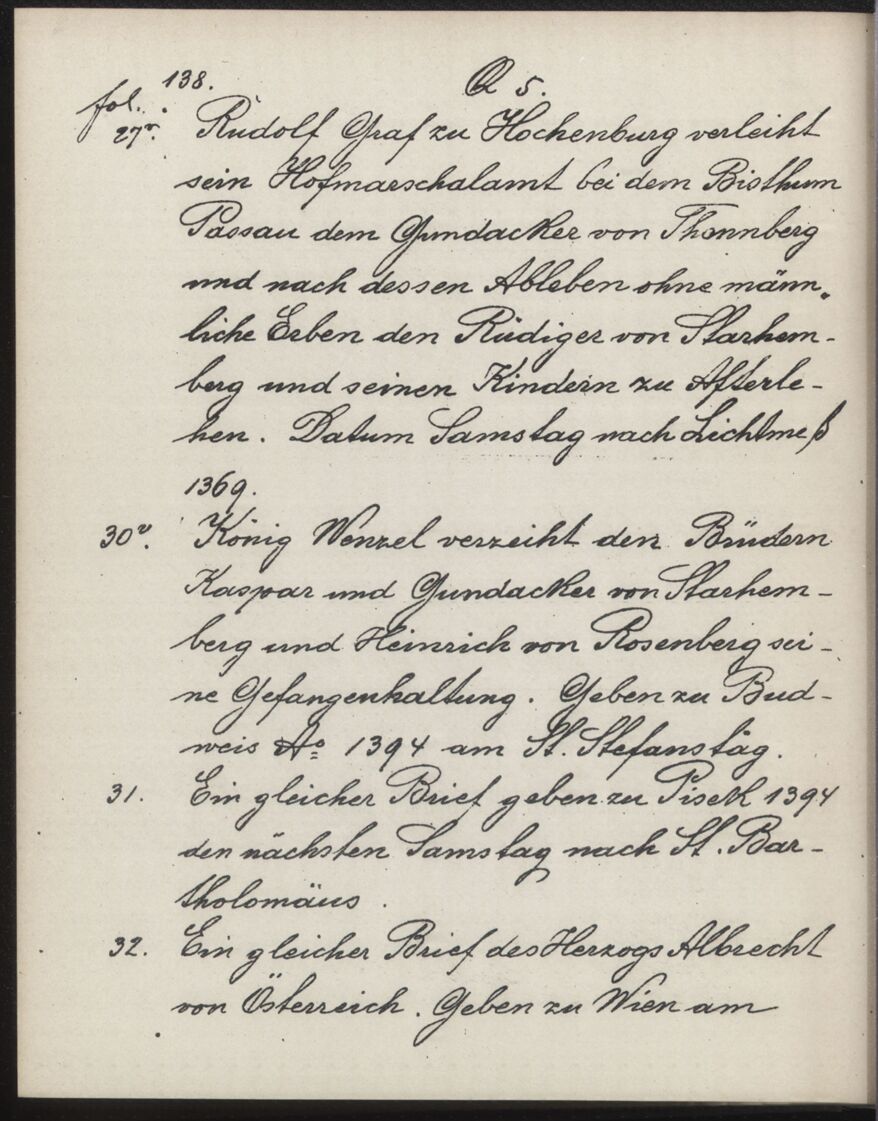 138. Q 5.
fol. 27v. Rudolf Graf zu Hochenburg verleiht
sein Hofmarschalamt bei dem Bisthum
Passau dem Gundacker von Thannberg
und nach dessen Ableben ohne männ„
liche Erben den Rüdiger von Starhem-
berg und seinen Kindern zu Afterle-
hen. Datum Samstag nach Lichtmeß
1369.
30v. König Wenzel verzeiht den Brüdern
Kaspar und Gundacker von Starhem-
berg und Heinrich von Rosenberg sei-
ne Gefangenhaltung. Geben zu Bud-
weis Ao 1394 am St. Stefanstag.
31. Ein gleicher Brief geben zu Pisek 1394
den nächsten Samstag nach St. Bar-
tholomäus.
32. Ein gleicher Brief des Herzogs Albrecht
von Österreich. Geben zu Wien am